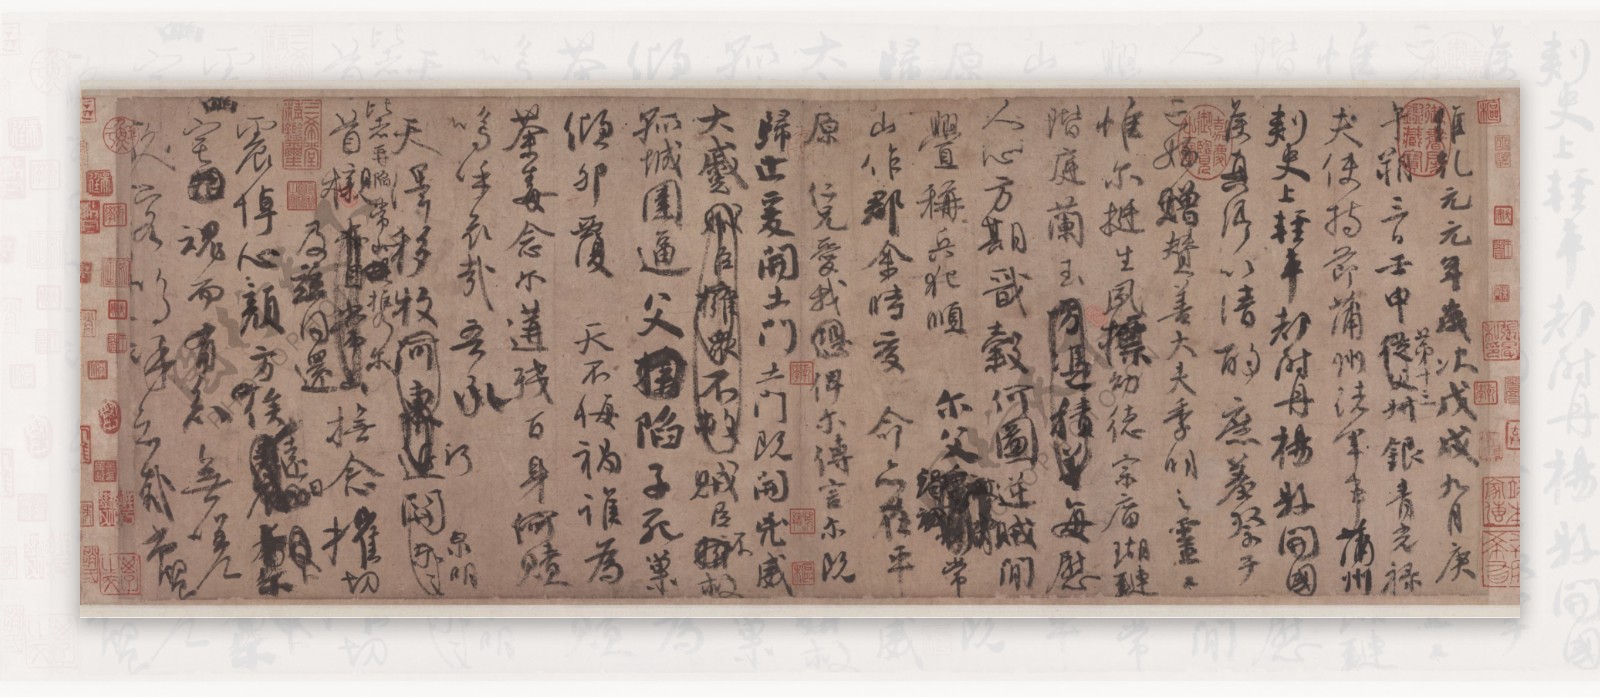 維乾元元年歲次戊戌九月庚
午朔三日壬申第十三從父叔銀青光祿
夫使持節蒲州諸軍事蒲州
刺史上輕車都尉丹楊縣開國
侯真卿以清酌庶羞祭于
亡姪贈贊善大夫季明之靈曰
惟尔挺生夙標幼德宗廟瑚璉
階庭蘭玉方憑積善每慰
人心方期戩穀何圖逆賊閒
釁稱兵犯順 尔父竭誠常
山作郡余時受 命亦在平
原 仁兄愛我恐俾尔傳言尔既
歸止爰開土門土門既開兇威
大蹙賊臣擁眾不救賊臣不救
孤城圍逼父擒陷子死巢
傾卵覆 天不悔禍誰為
荼毒念尔遘殘百身何贖
嗚呼哀哉吾承
天澤移牧河東近河關 泉明
比者再陷常山攜尔
首櫬 常山 撫念摧切
及茲同還
震悼心顏方俟遠日
宅魂而有知無嗟久
客嗚呼哀哉尚饗